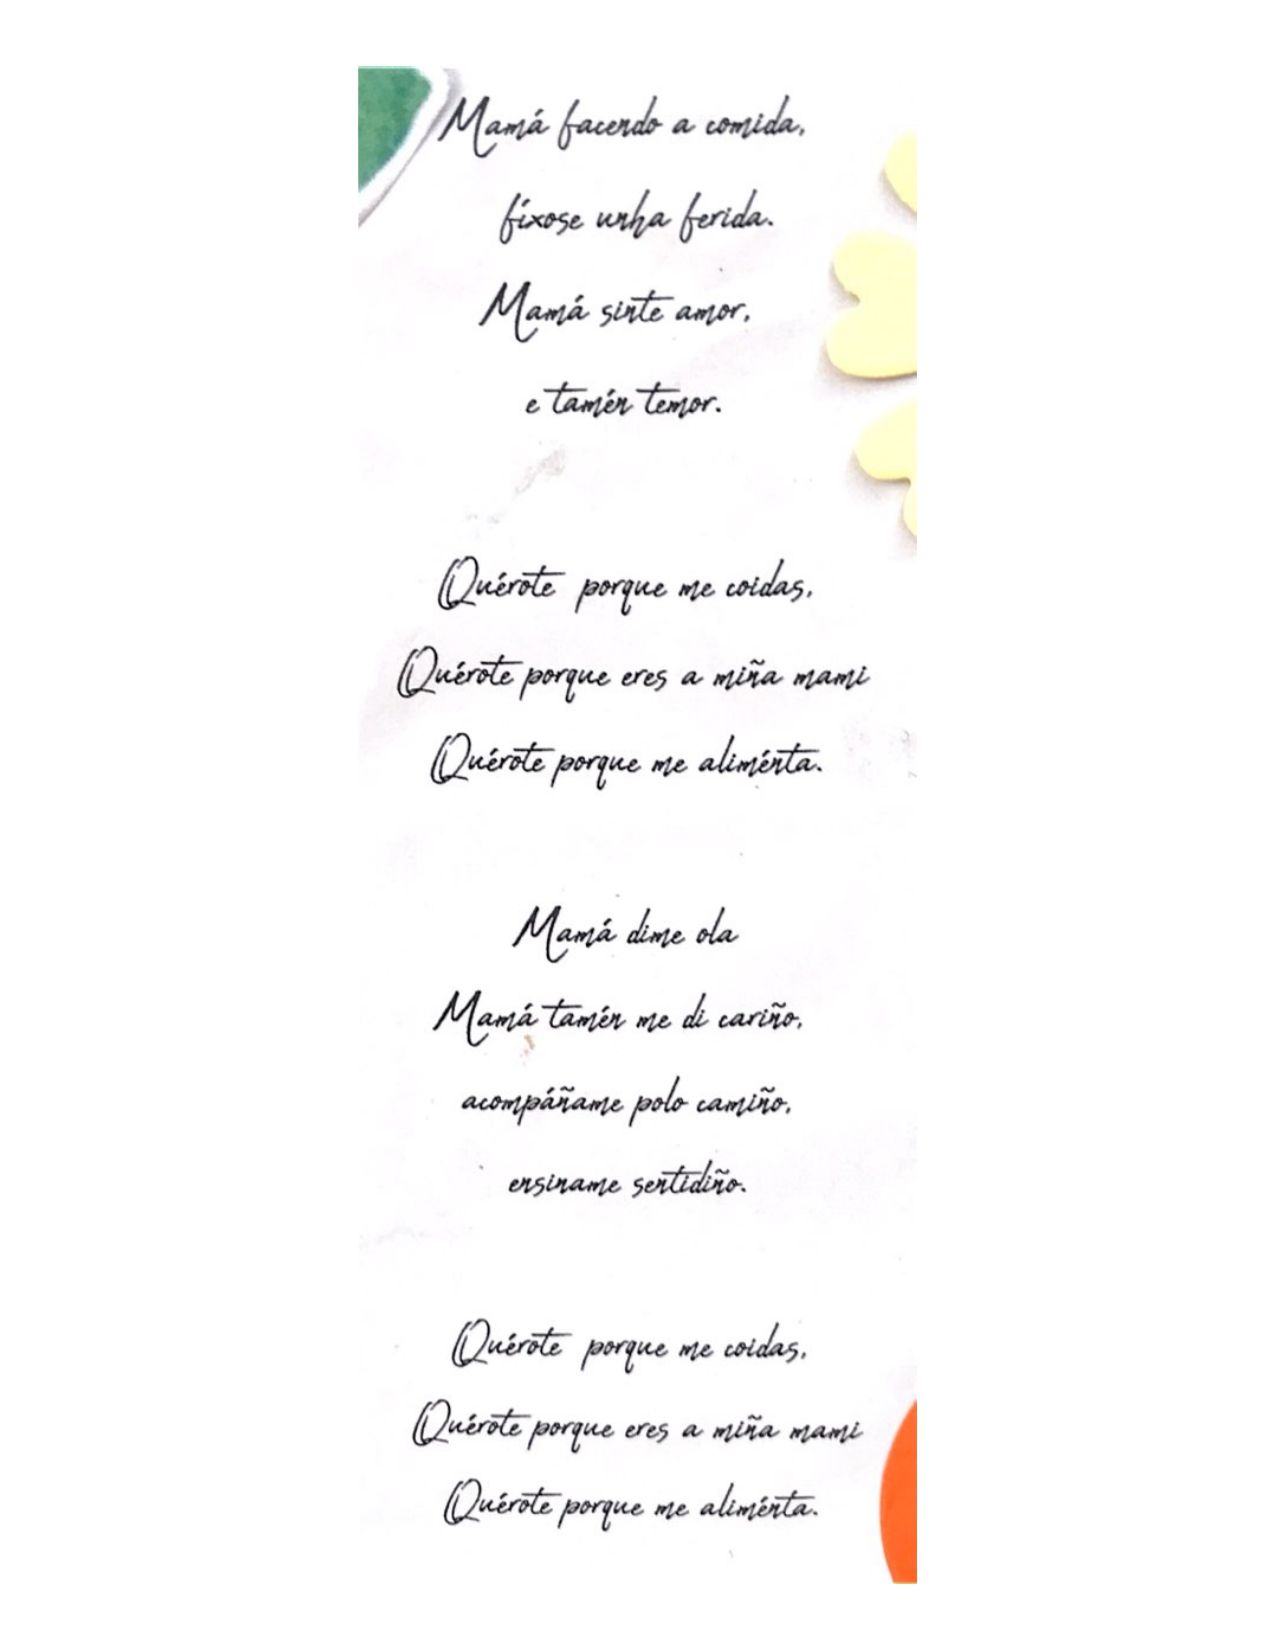 Mamá facendo a comida,
fíxose unha ferida.
Mamá sinte amor,
e tamén temor.
Quérote porque me coidas,
Quérote porque eres a miña mami
Quérote porque me aliménta.
Mamá dime ola
Mamá tamén me di cariño,
acompáñame polo camiño,
ensiname sentidiño.
Quérote porque me coidas,
Quérote porque eres a miña mami
Quérote porque me aliménta.